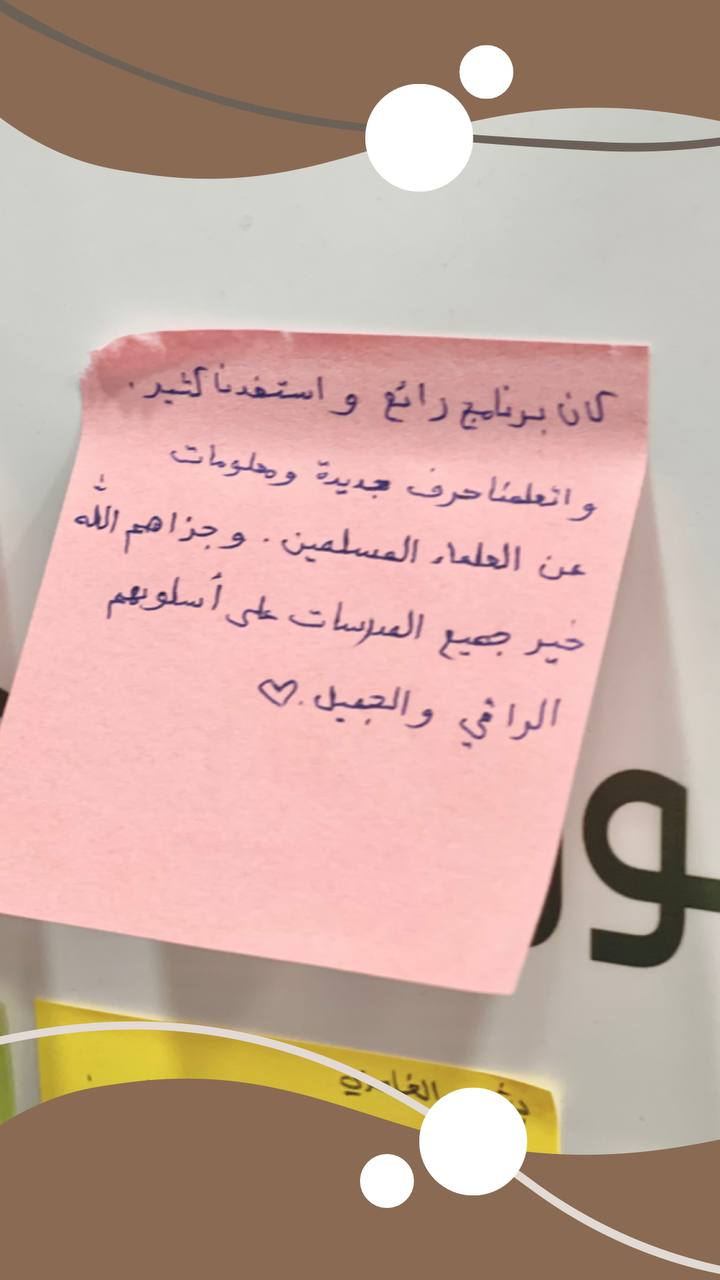 كان برنامج رائع و استفدنا كثير.
و اتعلمنا حرف جديدة ومعلومات
عن العلماء المسلمين. وجزاهم الله
خير جميع المدرسات على أسلوبهم
الراقي والجميل.♡
الغامدي